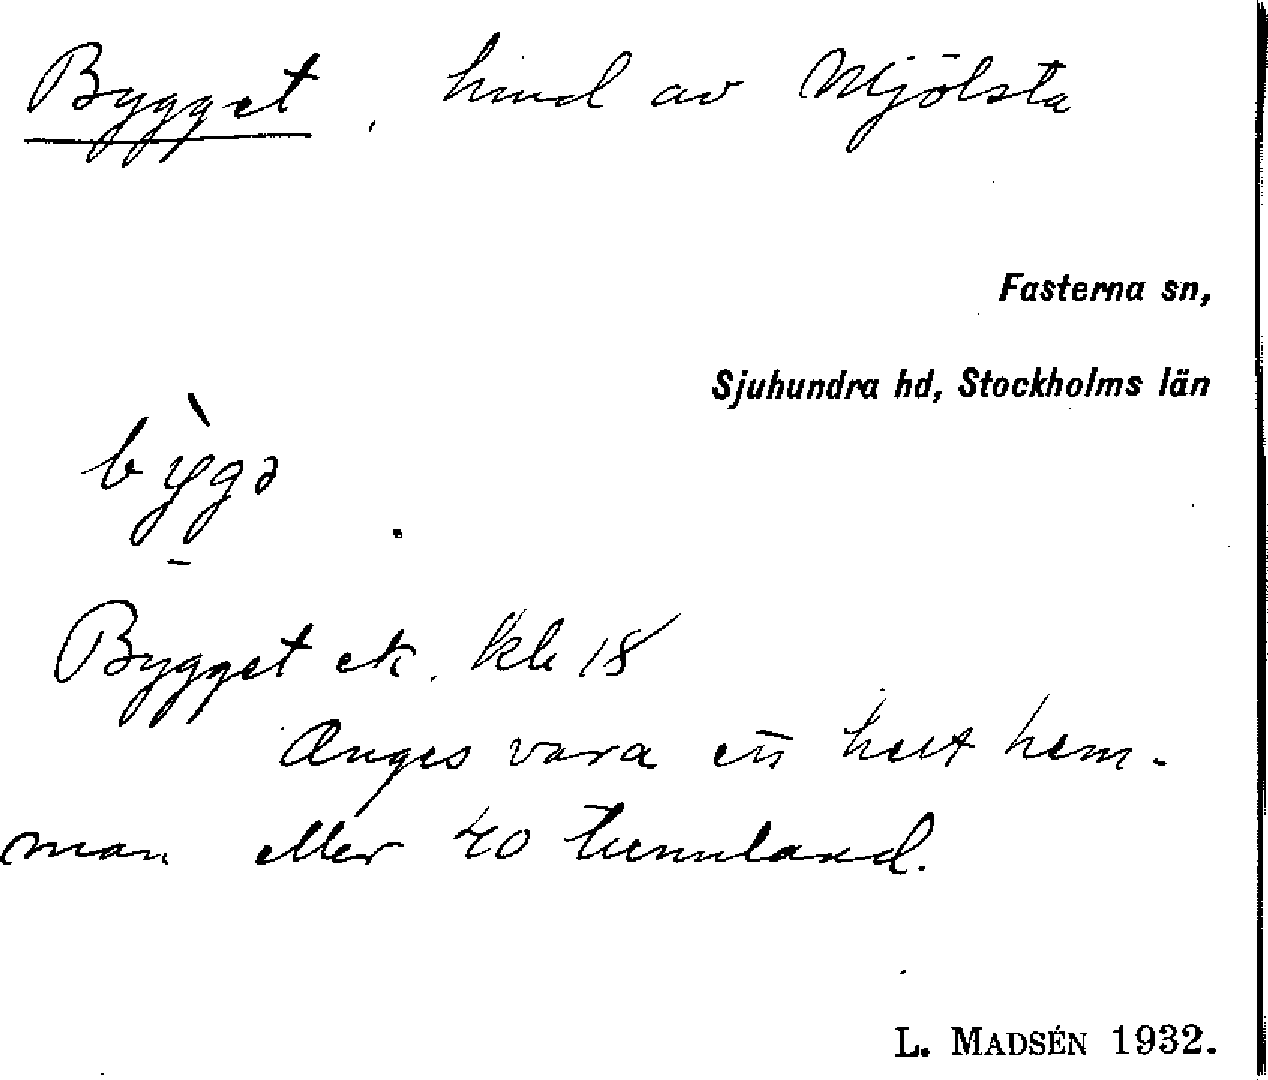 Bygget, hmd av Mjölsta
Fasterna sn,
Sjuhundra hd, Stockholms län
b`ygə
Bygget ek. kbl 18
Anges vara ett helt hem-
man eller 40 tunnland.
L. MADSÉN 1932.